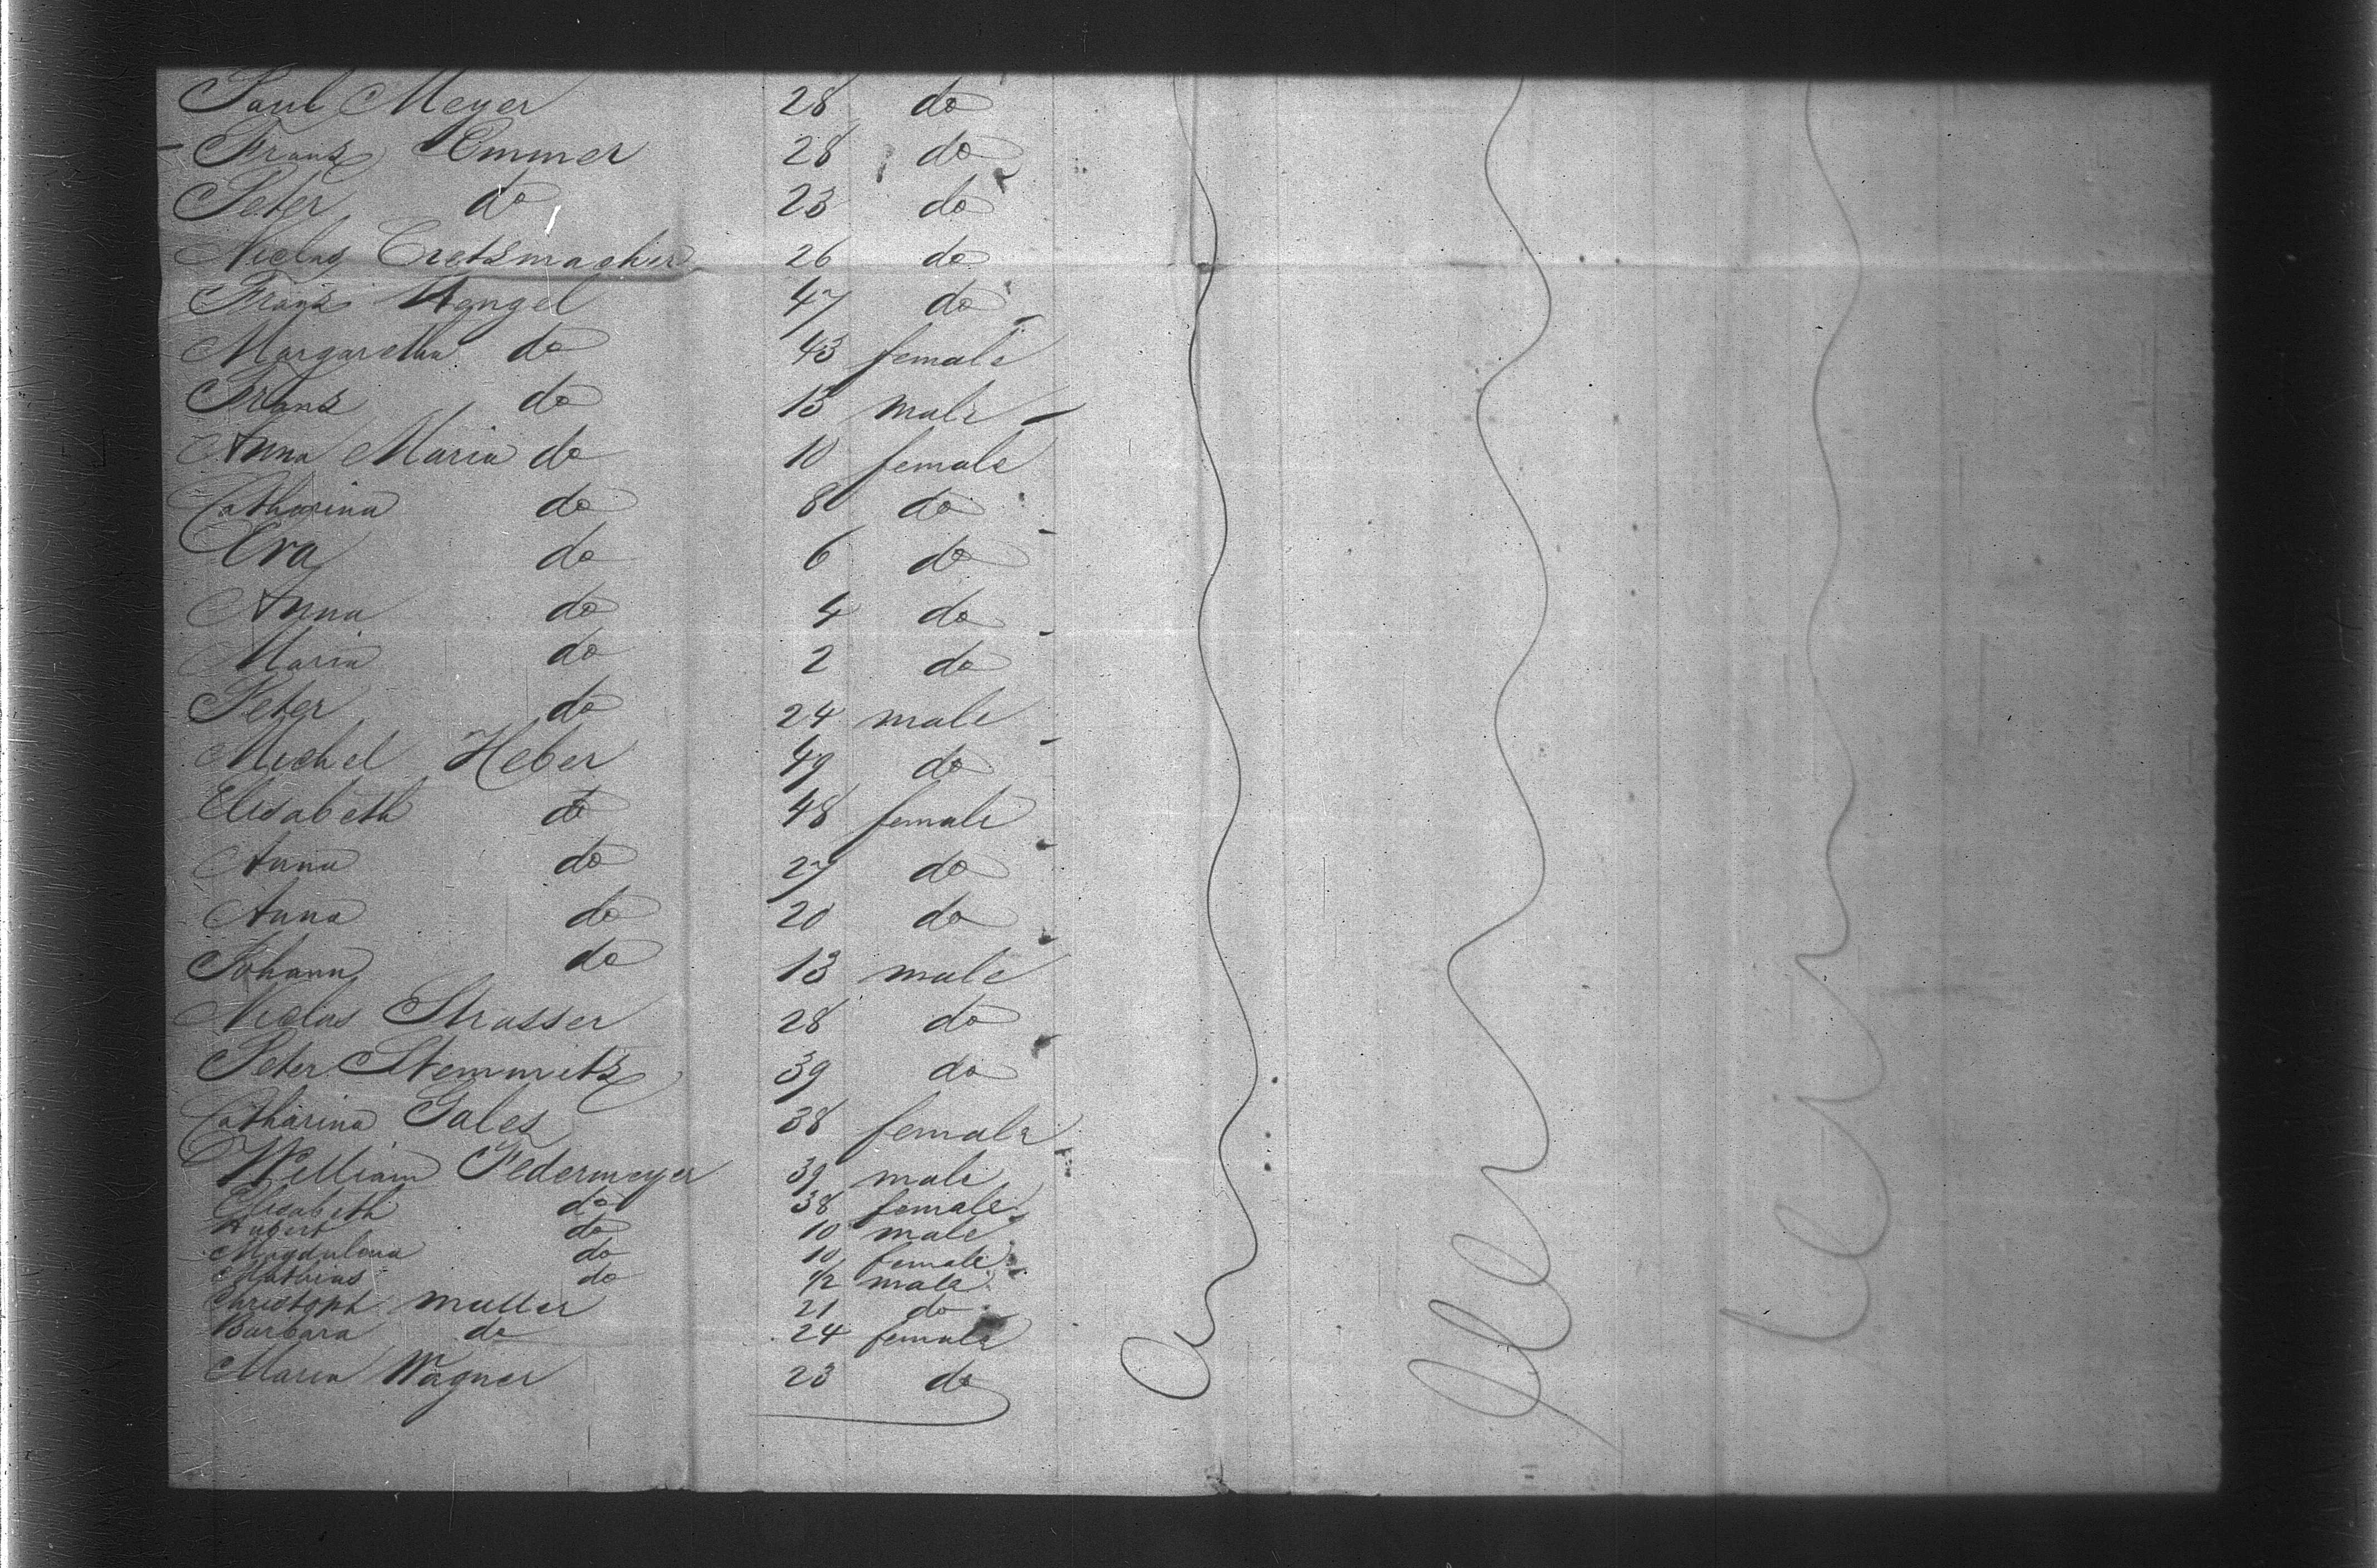 Paul Meyer 28 do
Franz Emmer 28 do
Peter do 23 do
Niclas Cretsmacher 26 do
Franz Wengel 47 do
Margaretha do 43 female
Franz do 13 male
Anna Maria do 10 female
Catharina do 8 do
Eva do 6 do
Anna do 4 do
Maria do 2 do
Peter do 24 male
Michel Heber 49 do
Elisabeth do 48 female
Anna do 27 do
Anna do 20 do
Johann do 13 male
Niclas Strasser 28 do
Peter Stemmetz 39 do
Catharina Gales 38 female
William Federmeyer 39 male
Elisabeth do 38 female
Hubert do 10 male
Magdalena do 10 female
Mathias do 1/2 male
Christoph Muller 21 do
Barbara do 24 female
Maria Wagner 23 do